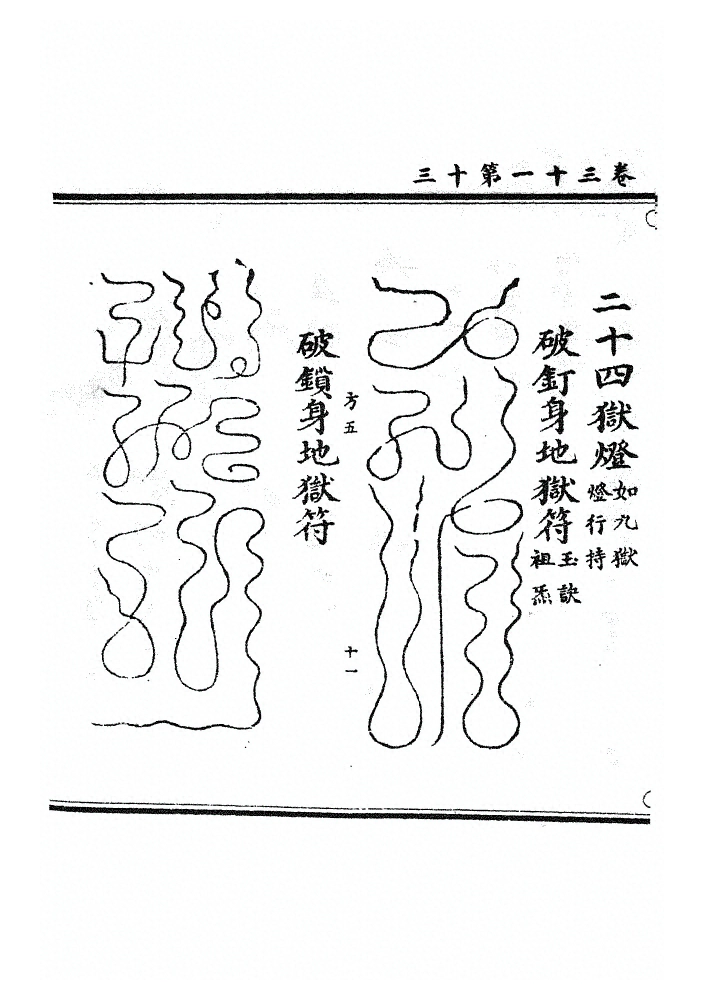 卷三十一第十三
二十四獄燈如九獄燈行持
破釘身地獄符玉訣祖炁
方五
十一
破鎖身地獄符